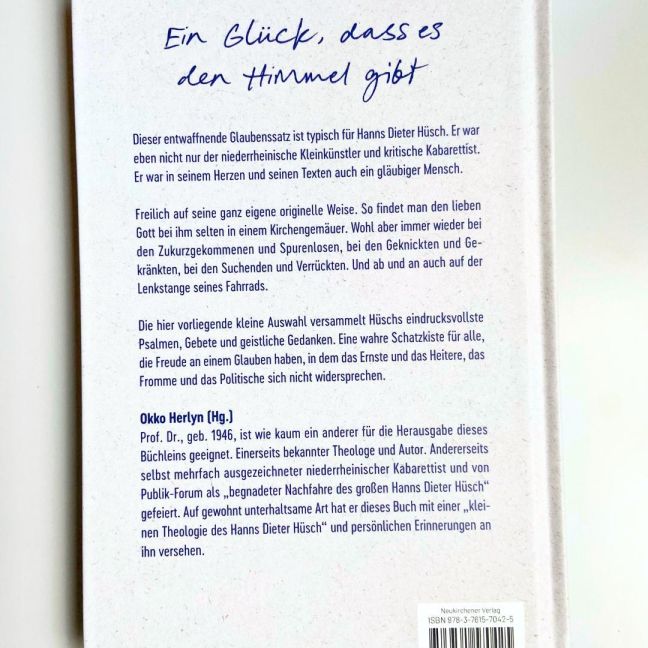 Ein Glück, dass es
den Himmel gibt
Dieser entwaffnende Glaubenssatz ist typisch für Hanns Dieter Hüsch. Er war
eben nicht nur der niederrheinische Kleinkünstler und kritische Kabarettist.
Er war in seinem Herzen und seinen Texten auch ein gläubiger Mensch.
Freilich auf seine ganz eigene originelle Weise. So findet man den lieben
Gott bei ihm selten in einem Kirchengemäuer. Wohl aber immer wieder bei
den Zukurzgekommenen und Spurenlosen, bei den Geknickten und Ge-
kränkten, bei den Suchenden und Verrückten. Und ab und an auch auf der
Lenkstange seines Fahrrads.
Die hier vorliegende kleine Auswahl versammelt Hüschs eindrucksvollste
Psalmen, Gebete und geistliche Gedanken. Eine wahre Schatzkiste für alle,
die Freude an einem Glauben haben, in dem das Ernste und das Heitere, das
Fromme und das Politische sich nicht widersprechen.
Okko Herlyn (Hg.)
Prof. Dr., geb. 1946, ist wie kaum ein anderer für die Herausgabe dieses
Büchleins geeignet. Einerseits bekannter Theologe und Autor. Andererseits
selbst mehrfach ausgezeichneter niederrheinischer Kabarettist und von
Publik-Forum als „begnadeter Nachfahre des großen Hanns Dieter Hüsch“
gefeiert. Auf gewohnt unterhaltsame Art hat er dieses Buch mit einer „klei-
nen Theologie des Hanns Dieter Hüsch“ und persönlichen Erinnerungen an
ihn versehen.
Neukirchener Verlag
ISBN 978-3-7615-7042-5